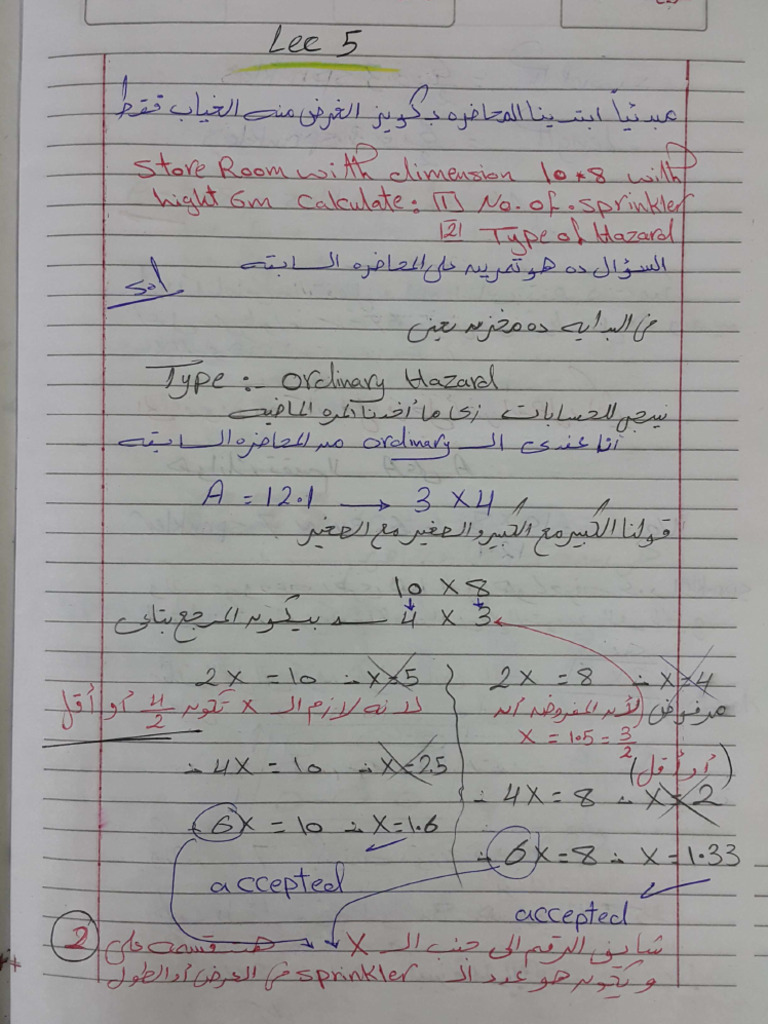 Lec 5
مبدئياً ابتدينا المحاضره بكويز الغرض منه الغياب فقط
Store Room with dimension 10*8 with
hight 6m calculate: [1] No. of. sprinkler
[2] Type of Hazard
السؤال ده هو تمرين على المحاضره السابقه
Sol
من البدايه ده مخزن يعنى
Type :- Ordinary Hazard
نيجى للحسابات زى ما أخدنا المره الماضيه
أنا عندى الـ ordinary من المحاضره السابقه
A = 12.1 → 3 X 4
قولنا الكبير مع الكبير و الصغير مع الصغير
10 X 8
4 X 3 بيكون المرجع بتاعى
2X = 10 ∴ X=5
لانه لازم الـ X تكون 4/2 أو أقل
∴ 4X = 10 ∴ X=2.5
6X = 10 ∴ X=1.6
accepted
2X = 8 ∴ X=4
مرفوض لأن المفروض أن
X = 1.5 = 3/2
(أو أقل)
∴ 4X = 8 ∴ X=2
∴ 6X = 8 ∴ X = 1.33
accepted
شايف الرقم الى جنب الـ X هنقسمه على 2
و يكون هو عدد الـ sprinkler فى العرض أو الطول